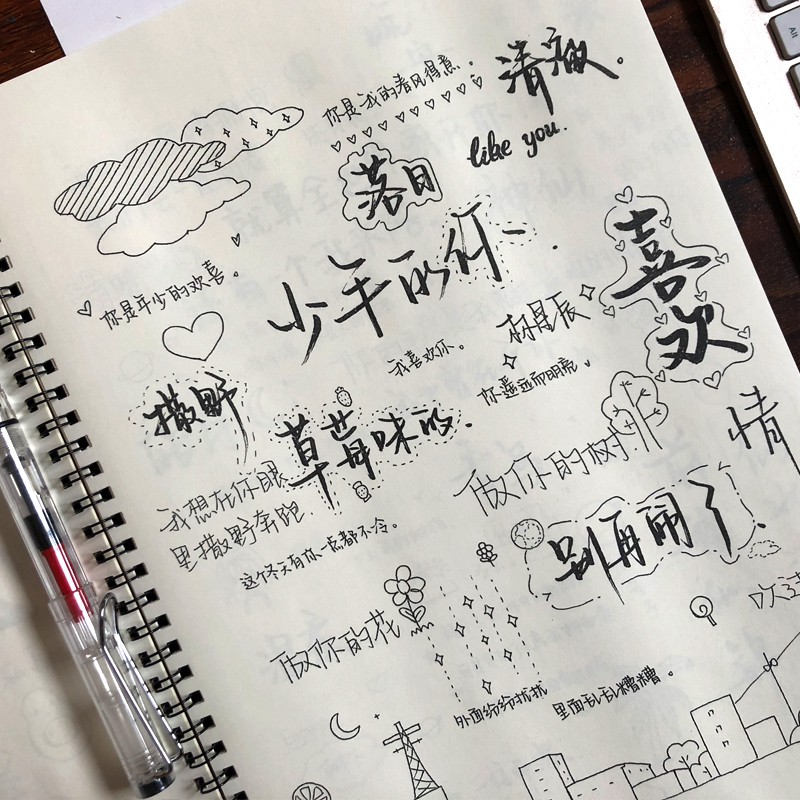 你是我的春风得意。
清澈。
like you.
落日
少年的你
喜欢
你是年少的欢喜。
我喜欢你。
你遥远而明亮
撒野
草莓味的.
情
做你的树
我想在你眼
里撒野奔跑.
别再闹了、
这个冬天有你一点都不冷。
做你的花
吹过
外面纷纷扰扰
里面乱乱糟糟。